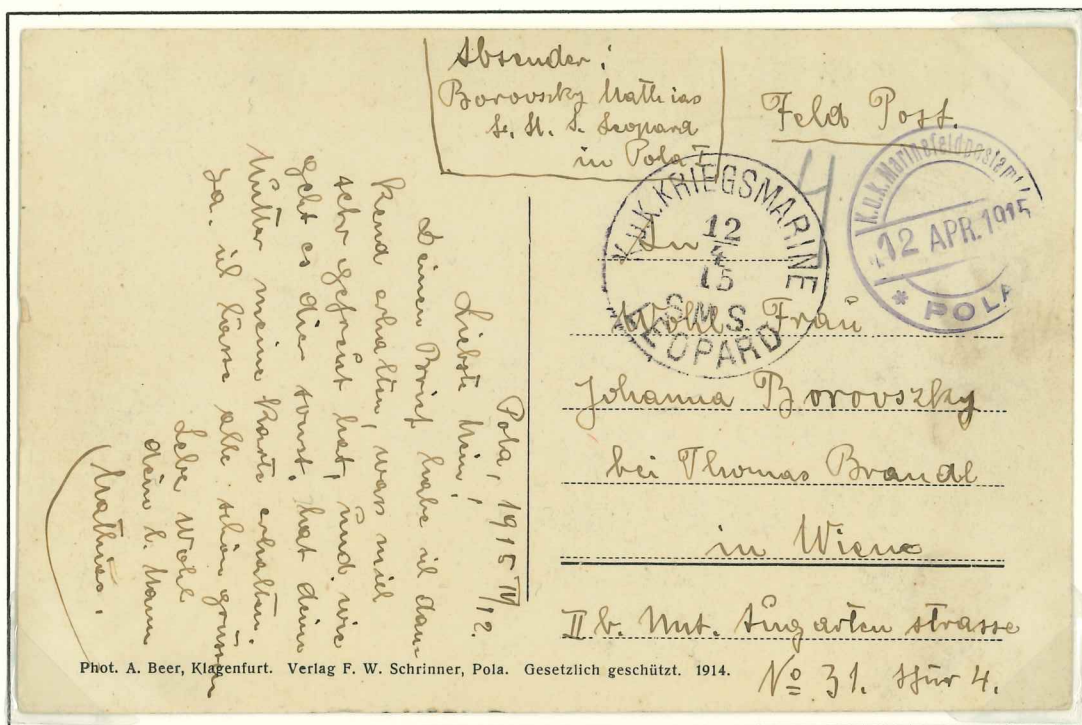 Absender:
Borovszky Mathias
S. M. S. Leopard
in Pola I
Feld Post.
K.u.K. KRIEGSMARINE
12
4
15
S.M.S.
LEOPARD
K.u.K. Marinefeldpostamt
12 APR. 1915
* POLA
4
An
Wohl. Frau
Johanna Borovszky
bei Thomas Brandl
in Wienc
II b. Unt. Augarten strasse
№ 31. thür 4.
Pola, 1915 IV/12.
Liebste Mein!
Deinen Brief habe ich dan
kend erhalten, was mich
sehr gefreut hat, und wie
geht es dier sonst, hat dein
Mutter meine Karte erhalten.
Ja. ich lasse alle schön grüssen
Lebe Wohl
dein l. Mann
Mathias.
Phot. A. Beer, Klagenfurt. Verlag F. W. Schrinner, Pola. Gesetzlich geschützt. 1914.